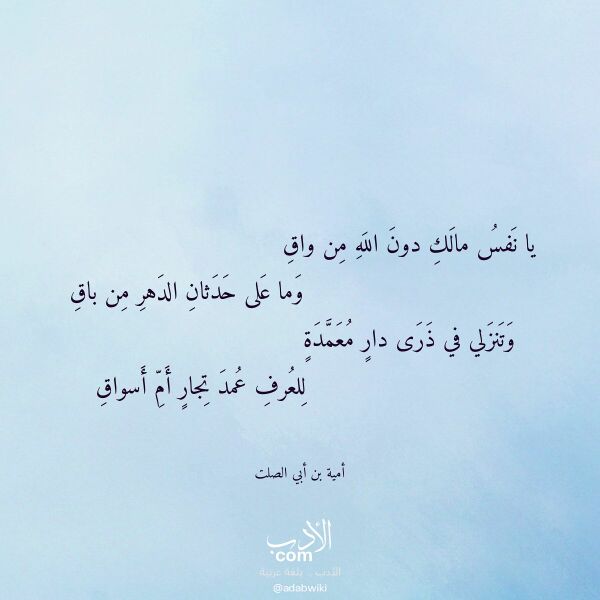 يا نَفسُ مالَكِ دونَ اللَهِ مِن واقِ
وَما عَلى حَدَثانِ الدَهرِ مِن باقِ
وَتَنزَلي في ذَرَى دارٍ مُعَمَّدَةٍ
لِلعُرفِ عُمدَ تِجارٍ أَمِّ أَسواقِ
أمية بن أبي الصلت
الأدب
com
الأدب .. بلغة عربية
@adabwiki